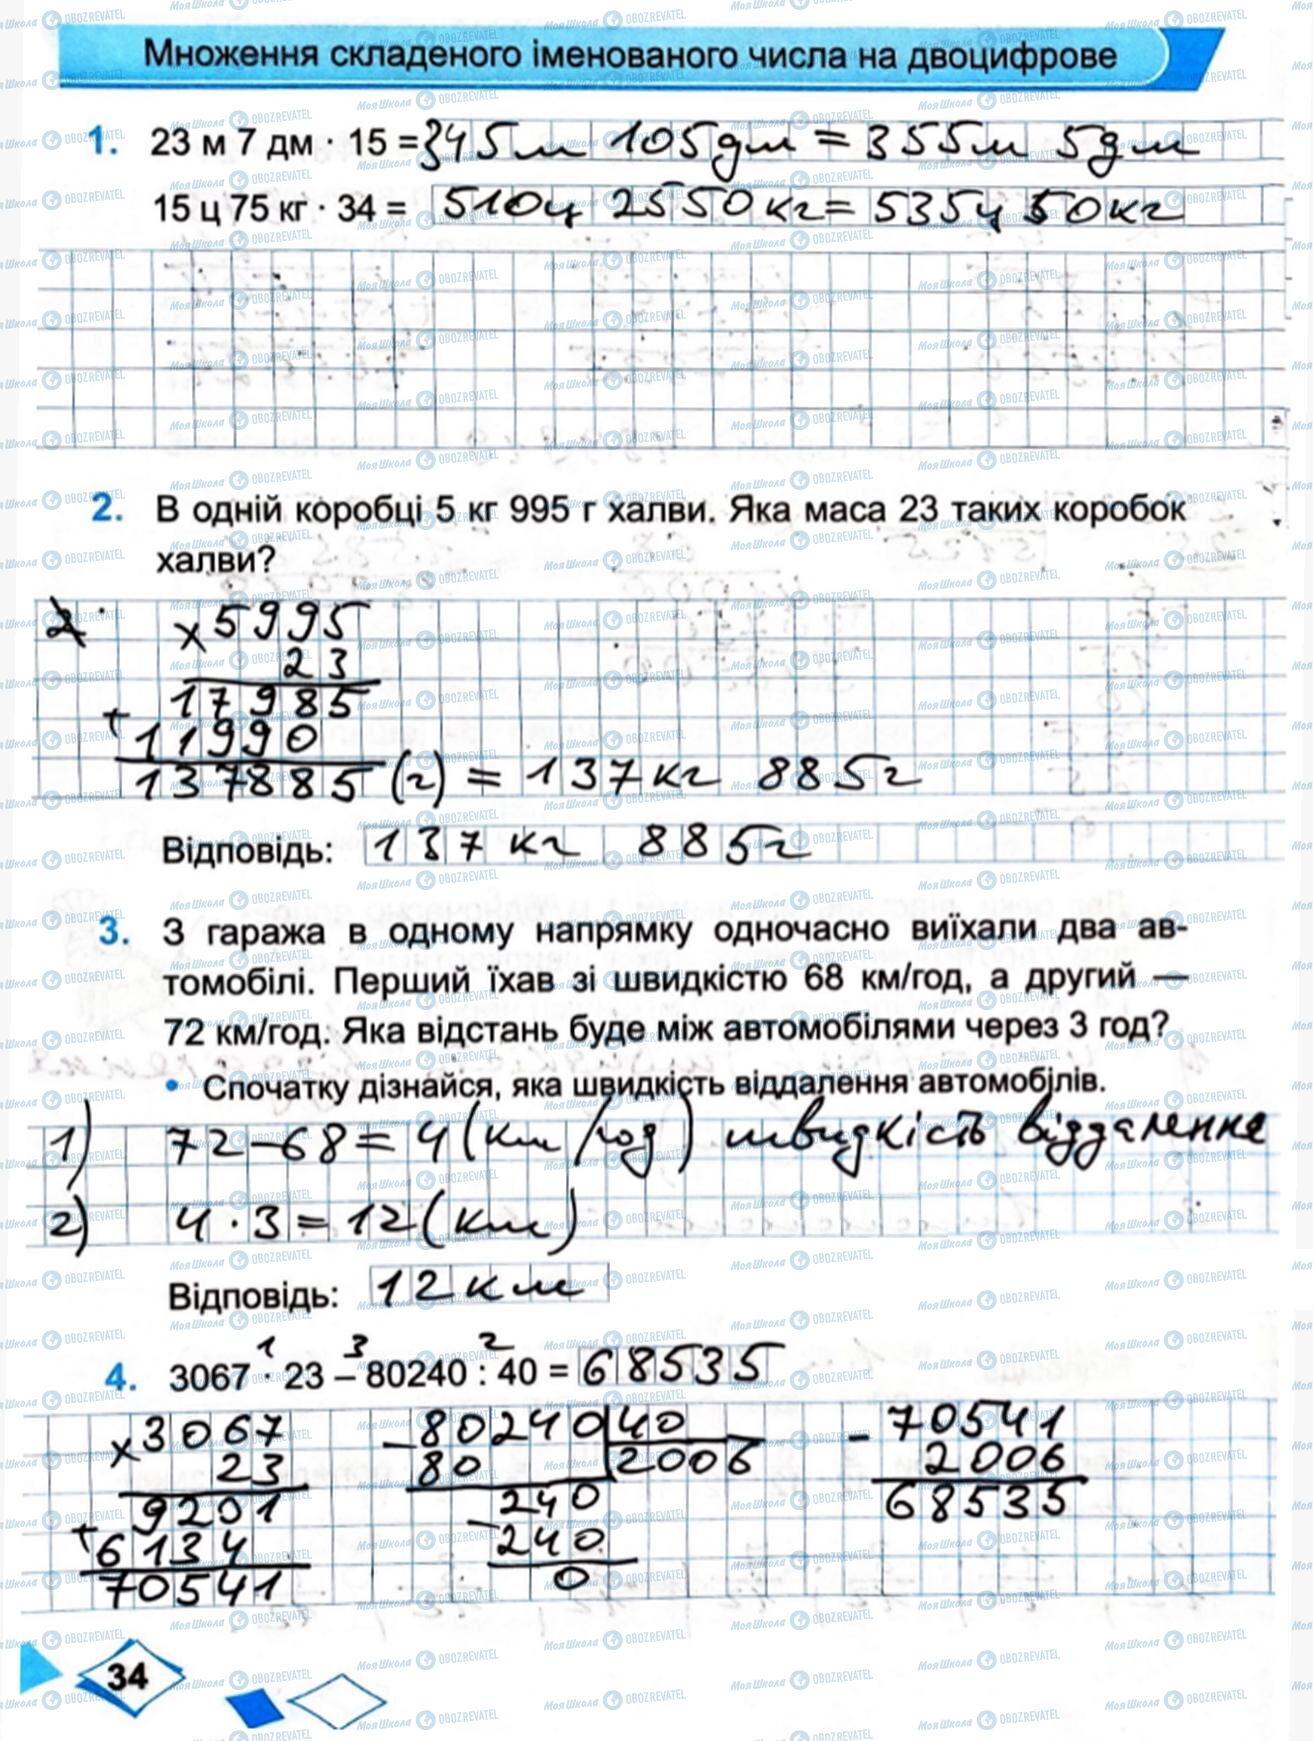 Множення складеного іменованого числа на двоцифрове
1. 23 м 7 дм · 15 = 345 м 105 дм = 355 м 5 дм
15 ц 75 кг · 34 = 510 ц 2550 кг = 535 ц 50 кг
2. В одній коробці 5 кг 995 г халви. Яка маса 23 таких коробок
халви?
× 5995
23
17985
+ 11990
137885 (г) = 137 кг 885 г
Відповідь: 137 кг 885 г
3. З гаража в одному напрямку одночасно виїхали два ав-
томобілі. Перший їхав зі швидкістю 68 км/год, а другий —
72 км/год. Яка відстань буде між автомобілями через 3 год?
• Спочатку дізнайся, яка швидкість віддалення автомобілів.
1) 72 - 68 = 4 (км/год) швидкість віддалення
2) 4 · 3 = 12 (км)
Відповідь: 12 км
1 3 2
4. 3067 · 23 – 80240 : 40 = 68535
× 3067 - 80240 | 40 - 70541
23 80 2006 2006
9201 - 240 68535
+ 6134 240
70541 0
34
МояШкола OBOZREVATEL